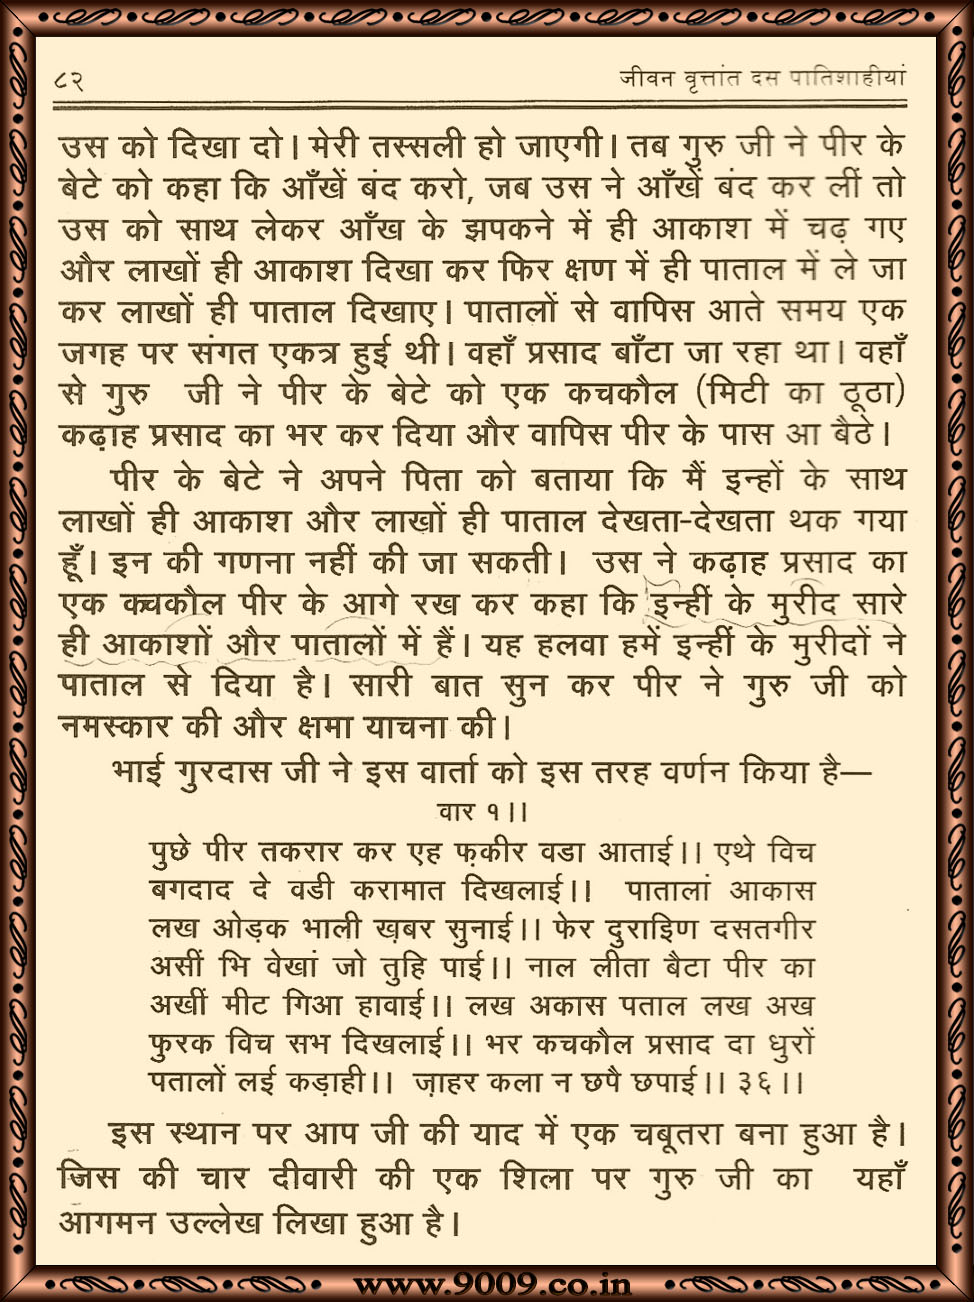 ८२ जीवन वृत्तांत दस पातिशाहीयां
उस को दिखा दो। मेरी तस्सली हो जाएगी। तब गुरु जी ने पीर के
बेटे को कहा कि आँखें बंद करो, जब उस ने आँखें बंद कर लीं तो
उस को साथ लेकर आँख के झपकने में ही आकाश में चढ़ गए
और लाखों ही आकाश दिखा कर फिर क्षण में ही पाताल में ले जा
कर लाखों ही पाताल दिखाए। पातालों से वापिस आते समय एक
जगह पर संगत एकत्र हुई थी। वहाँ प्रसाद बाँटा जा रहा था। वहाँ
से गुरु जी ने पीर के बेटे को एक कचकौल (मिटी का ठूठा)
कढ़ाह प्रसाद का भर कर दिया और वापिस पीर के पास आ बैठे।
पीर के बेटे ने अपने पिता को बताया कि मैं इन्हों के साथ
लाखों ही आकाश और लाखों ही पाताल देखता-देखता थक गया
हूँ। इन की गणना नहीं की जा सकती। उस ने कढ़ाह प्रसाद का
एक क्चकौल पीर के आगे रख कर कहा कि इन्हीं के मुरीद सारे
ही आकाशों और पातालों में हैं। यह हलवा हमें इन्हीं के मुरीदों ने
पाताल से दिया है। सारी बात सुन कर पीर ने गुरु जी को
नमस्कार की और क्षमा याचना की।
भाई गुरदास जी ने इस वार्ता को इस तरह वर्णन किया है—
वार १।।
पुछे पीर तकरार कर एह फ़कीर वडा आताई।। एथे विच
बगदाद दे वडी करामात दिखलाई।। पातालां आकास
लख ओड़क भाली ख़बर सुनाई।। फेर दुराइिण दसतगीर
असीं भि वेखां जो तुहि पाई।। नाल लीता बैटा पीर का
अखीं मीट गिआ हावाई।। लख अकास पताल लख अख
फुरक विच सभ दिखलाई।। भर कचकौल प्रसाद दा धुरों
पतालों लई कड़ाही।। ज़ाहर कला न छपै छपाई।। ३६।।
इस स्थान पर आप जी की याद में एक चबूतरा बना हुआ है।
जिस की चार दीवारी की एक शिला पर गुरु जी का यहाँ
आगमन उल्लेख लिखा हुआ है।
www.9009.co.in